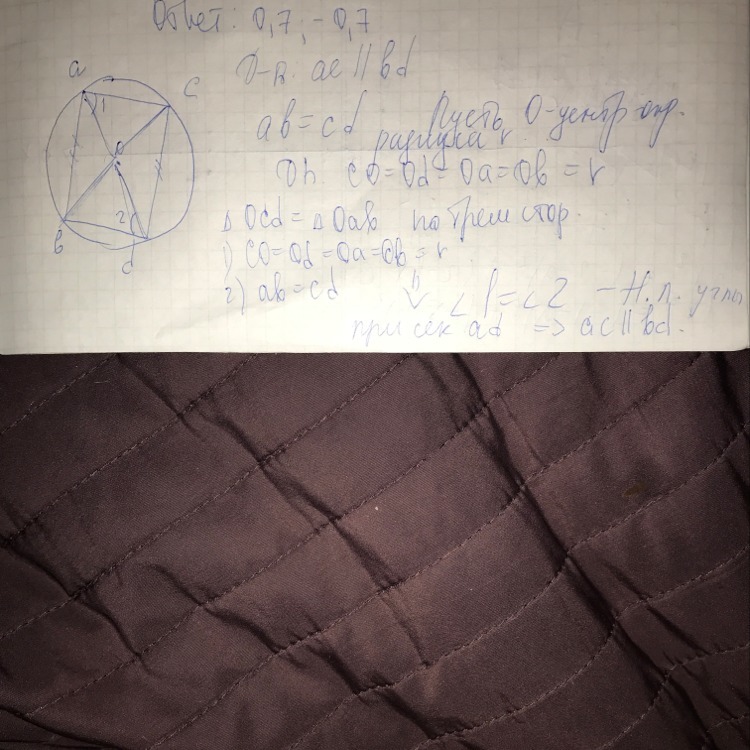 Ответ: 0,7; -0,7
Д-ть: ac || bd
a
c
1
o
2
b
d
ab = cd Пусть O-центр окр.
радиуса r
Οh CO=Od=Oa=Ob=r
Δ Ocd = Δ Oab по трем стор.
1) CO=Od=Oa=Ob=r
2) ab=cd
⇓ ∠1=∠2 -Н.л. углы
при сек ad => ac||bd.